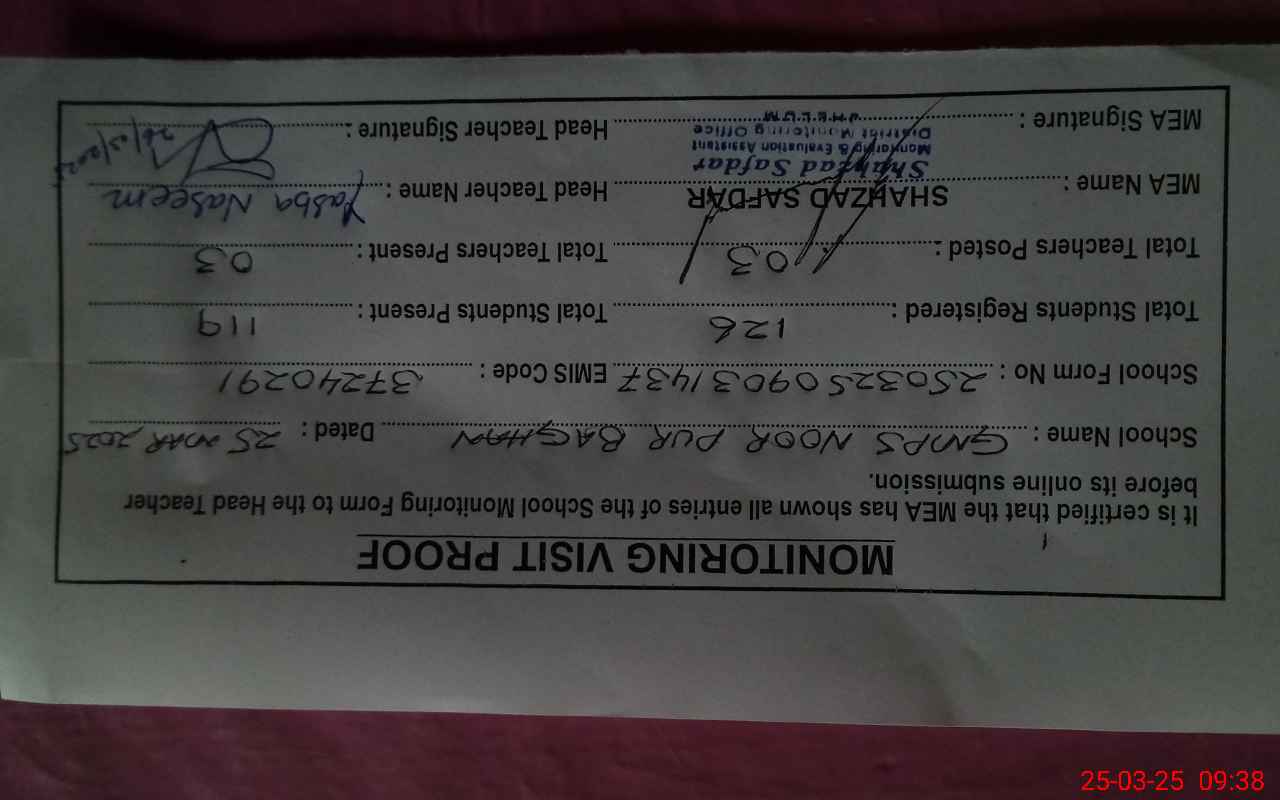 MONITORING VISIT PROOF
It is certified that the MEA has shown all entries of the School Monitoring Form to the Head Teacher
before its online submission.
School Name : GMPS NOOR PUR BAGHAN Dated : 25 MAR 2025
School Form No : 25032509031437 EMIS Code : 37240291
Total Students Registered : 126 Total Students Present : 119
Total Teachers Posted : 03 Total Teachers Present : 03
MEA Name : SHAHZAD SAFDAR Head Teacher Name : Yasba Naseem
Shahzad Safdar
Monitoring & Evaluation Assistant
District Monitoring Office
JHELUM
MEA Signature : Head Teacher Signature :
25-03-25 09:38